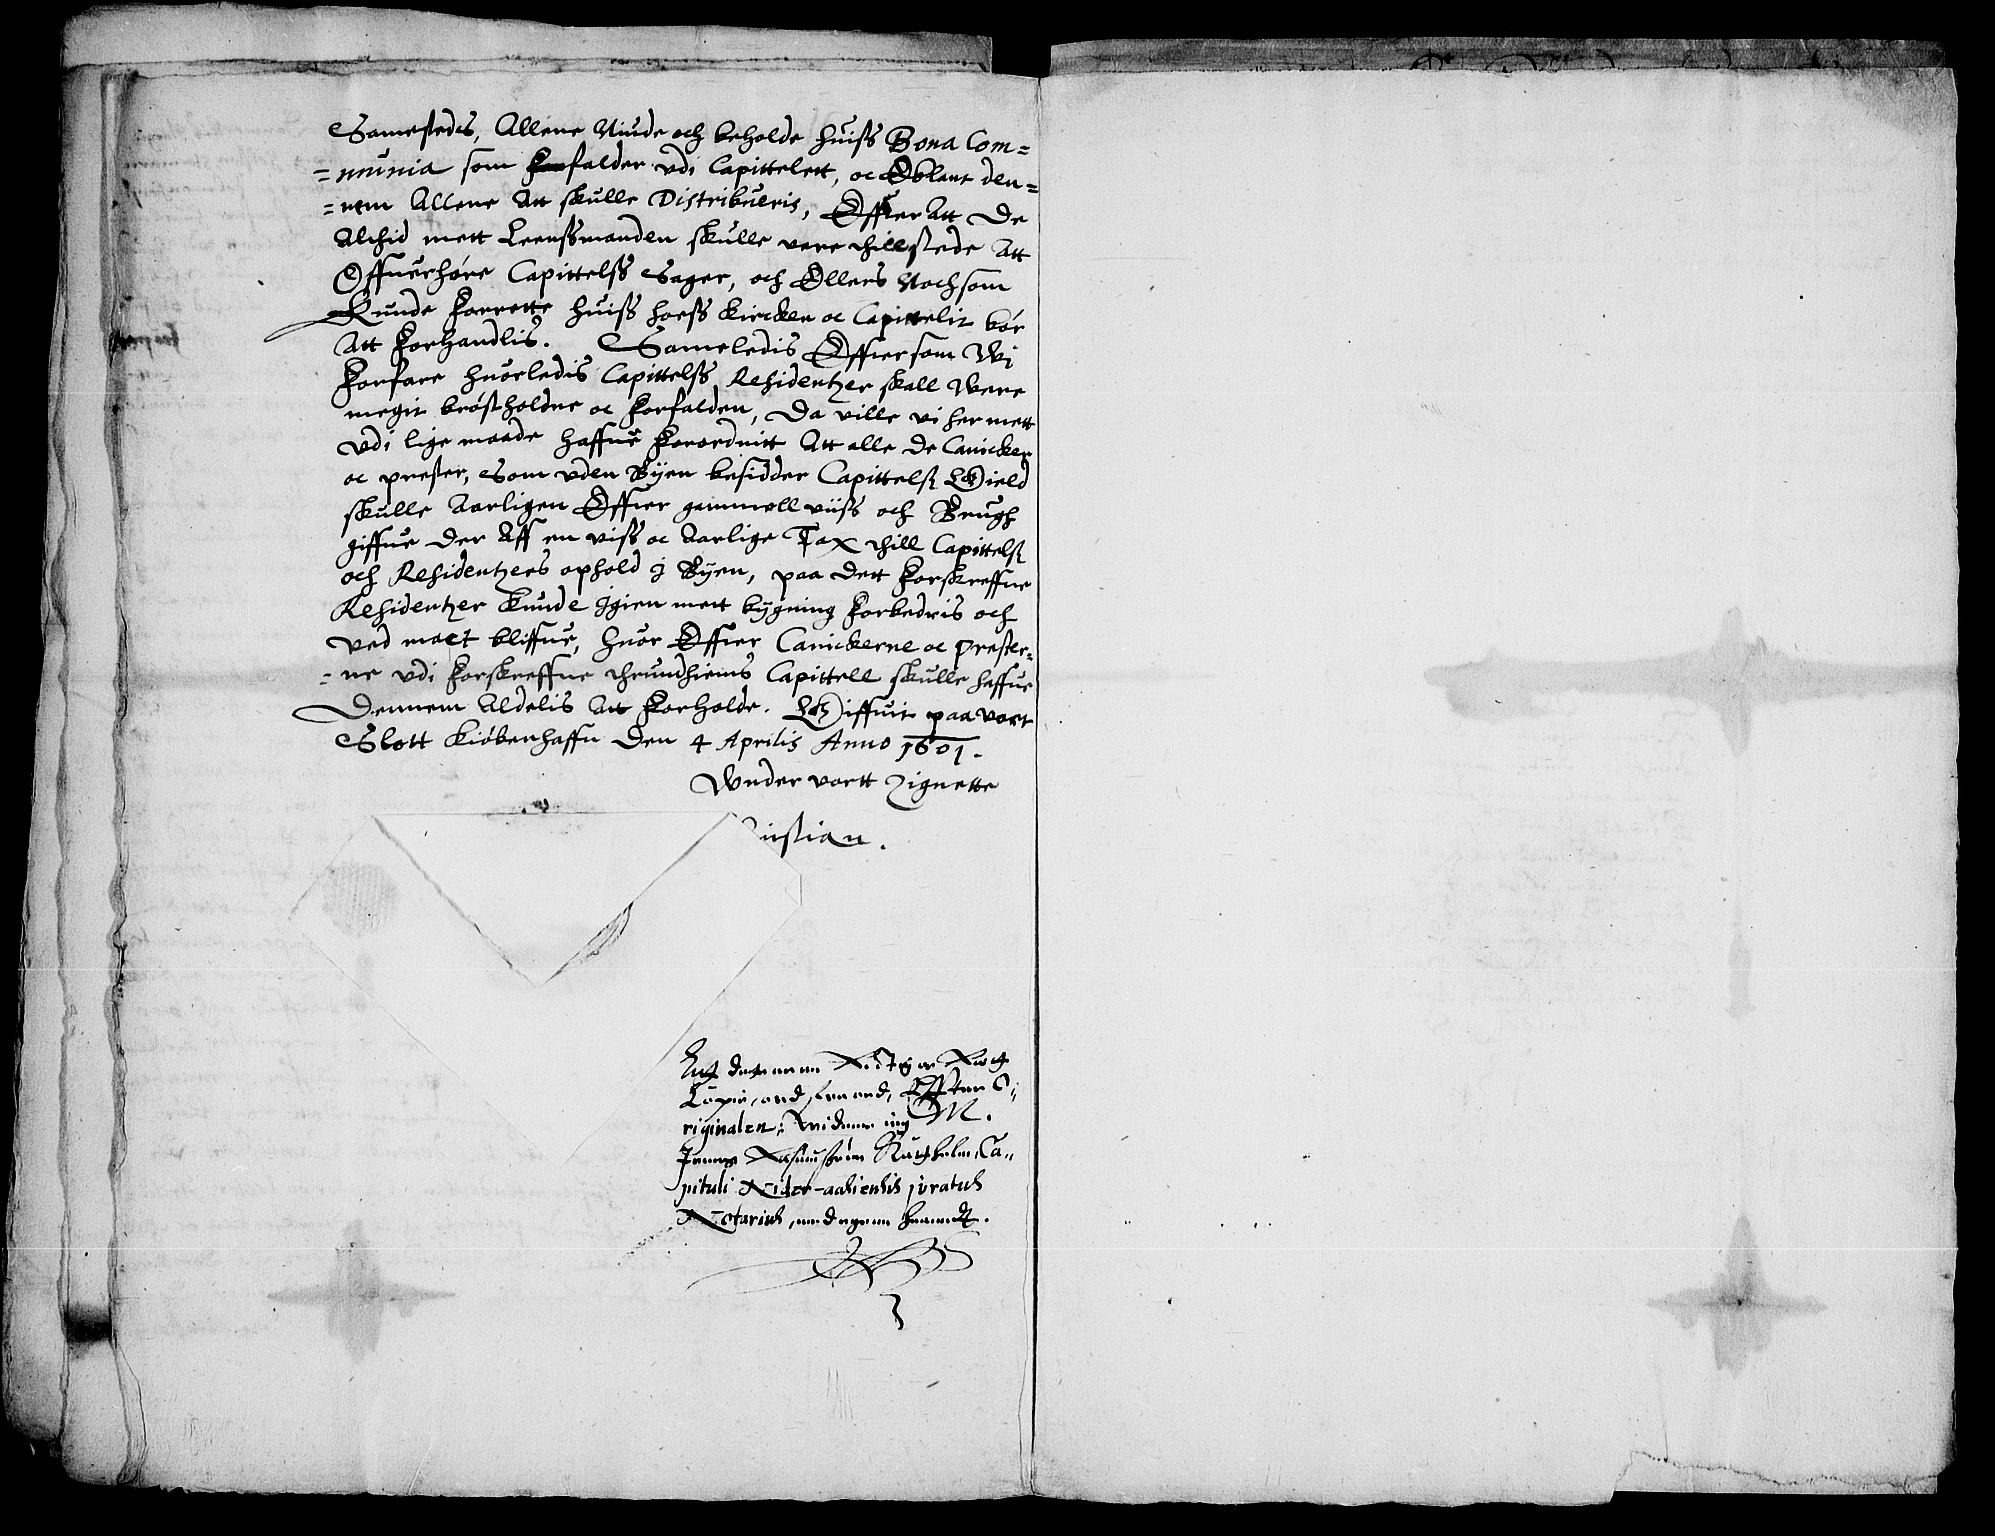 Samestedes, Allene Niude och beholde huiss Bona Com=
=munia som forfalder vdi Capittelett, oc Iblant den=
=nem Allene Att skulle Distribueris, Effter Att De
Altid mett Leenssmanden skulle vere thillstede Att
Offuerhøre Capittelss Sager, och Ellers Noch som
Kunde forrette huiss hoess Kircken oc Capittelit bør
Att forhandlis. Sameledis Effter som Wj
forfare huorledis Capittelss Residentzer skall Were
megit brøstholdne oc forfalden, Da ville vi her mett
vdi lige maade haffue forordnitt Att alle De Canicker
oc prester, Som vden Byen besidder Capittelss Gield
skulle Aarligen Effter gammell viiss och Brugh
giffue Der Aff en viss oc Aarlige Tax thill Capittelss
och Residentzers ophold j Byen, paa Dett forskreffne
Residentzer kunde Igien mett bygning forbedris och
ved mact bliffue, huor Effter Canickerne oc prester=
=ne vdi forskreffne thrundhiems Capittell skulle haffue
Dennem Aldelis Att forholde. Giffuit paa vort
Slott Kiøbenhaffn Den 4 Aprilis Anno 1601.
Wnder vortt Zignette
istian.
At dette er en Rictig oc
Copie, ord fra ord, Effter O=
riginalen; Widner ieg M.
Jenns Rasmussøn Ca=
pituli Nider-osiensis juratus
Notarius, med egen haandt.